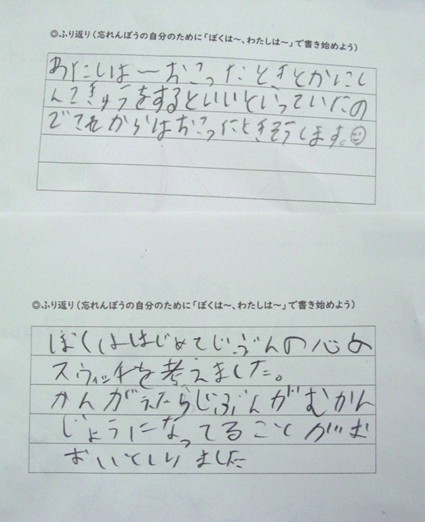 ◎ふり返り（忘れんぼうの自分のために「ぼくは～、わたしは～」で書き始めよう）
わたしは一おこったときとかにし
んこきゅうをするといいといっていたの
でこれからはおこったときそうします。
◎ふり返り（忘れんぼうの自分のために「ぼくは～、わたしは～」で書き始めよう）
ぼくははじめてじぶんの心の
スウィッチを考えました。
かんがえたらじぶんがむかん
じょうになってることがお
おいとしりました